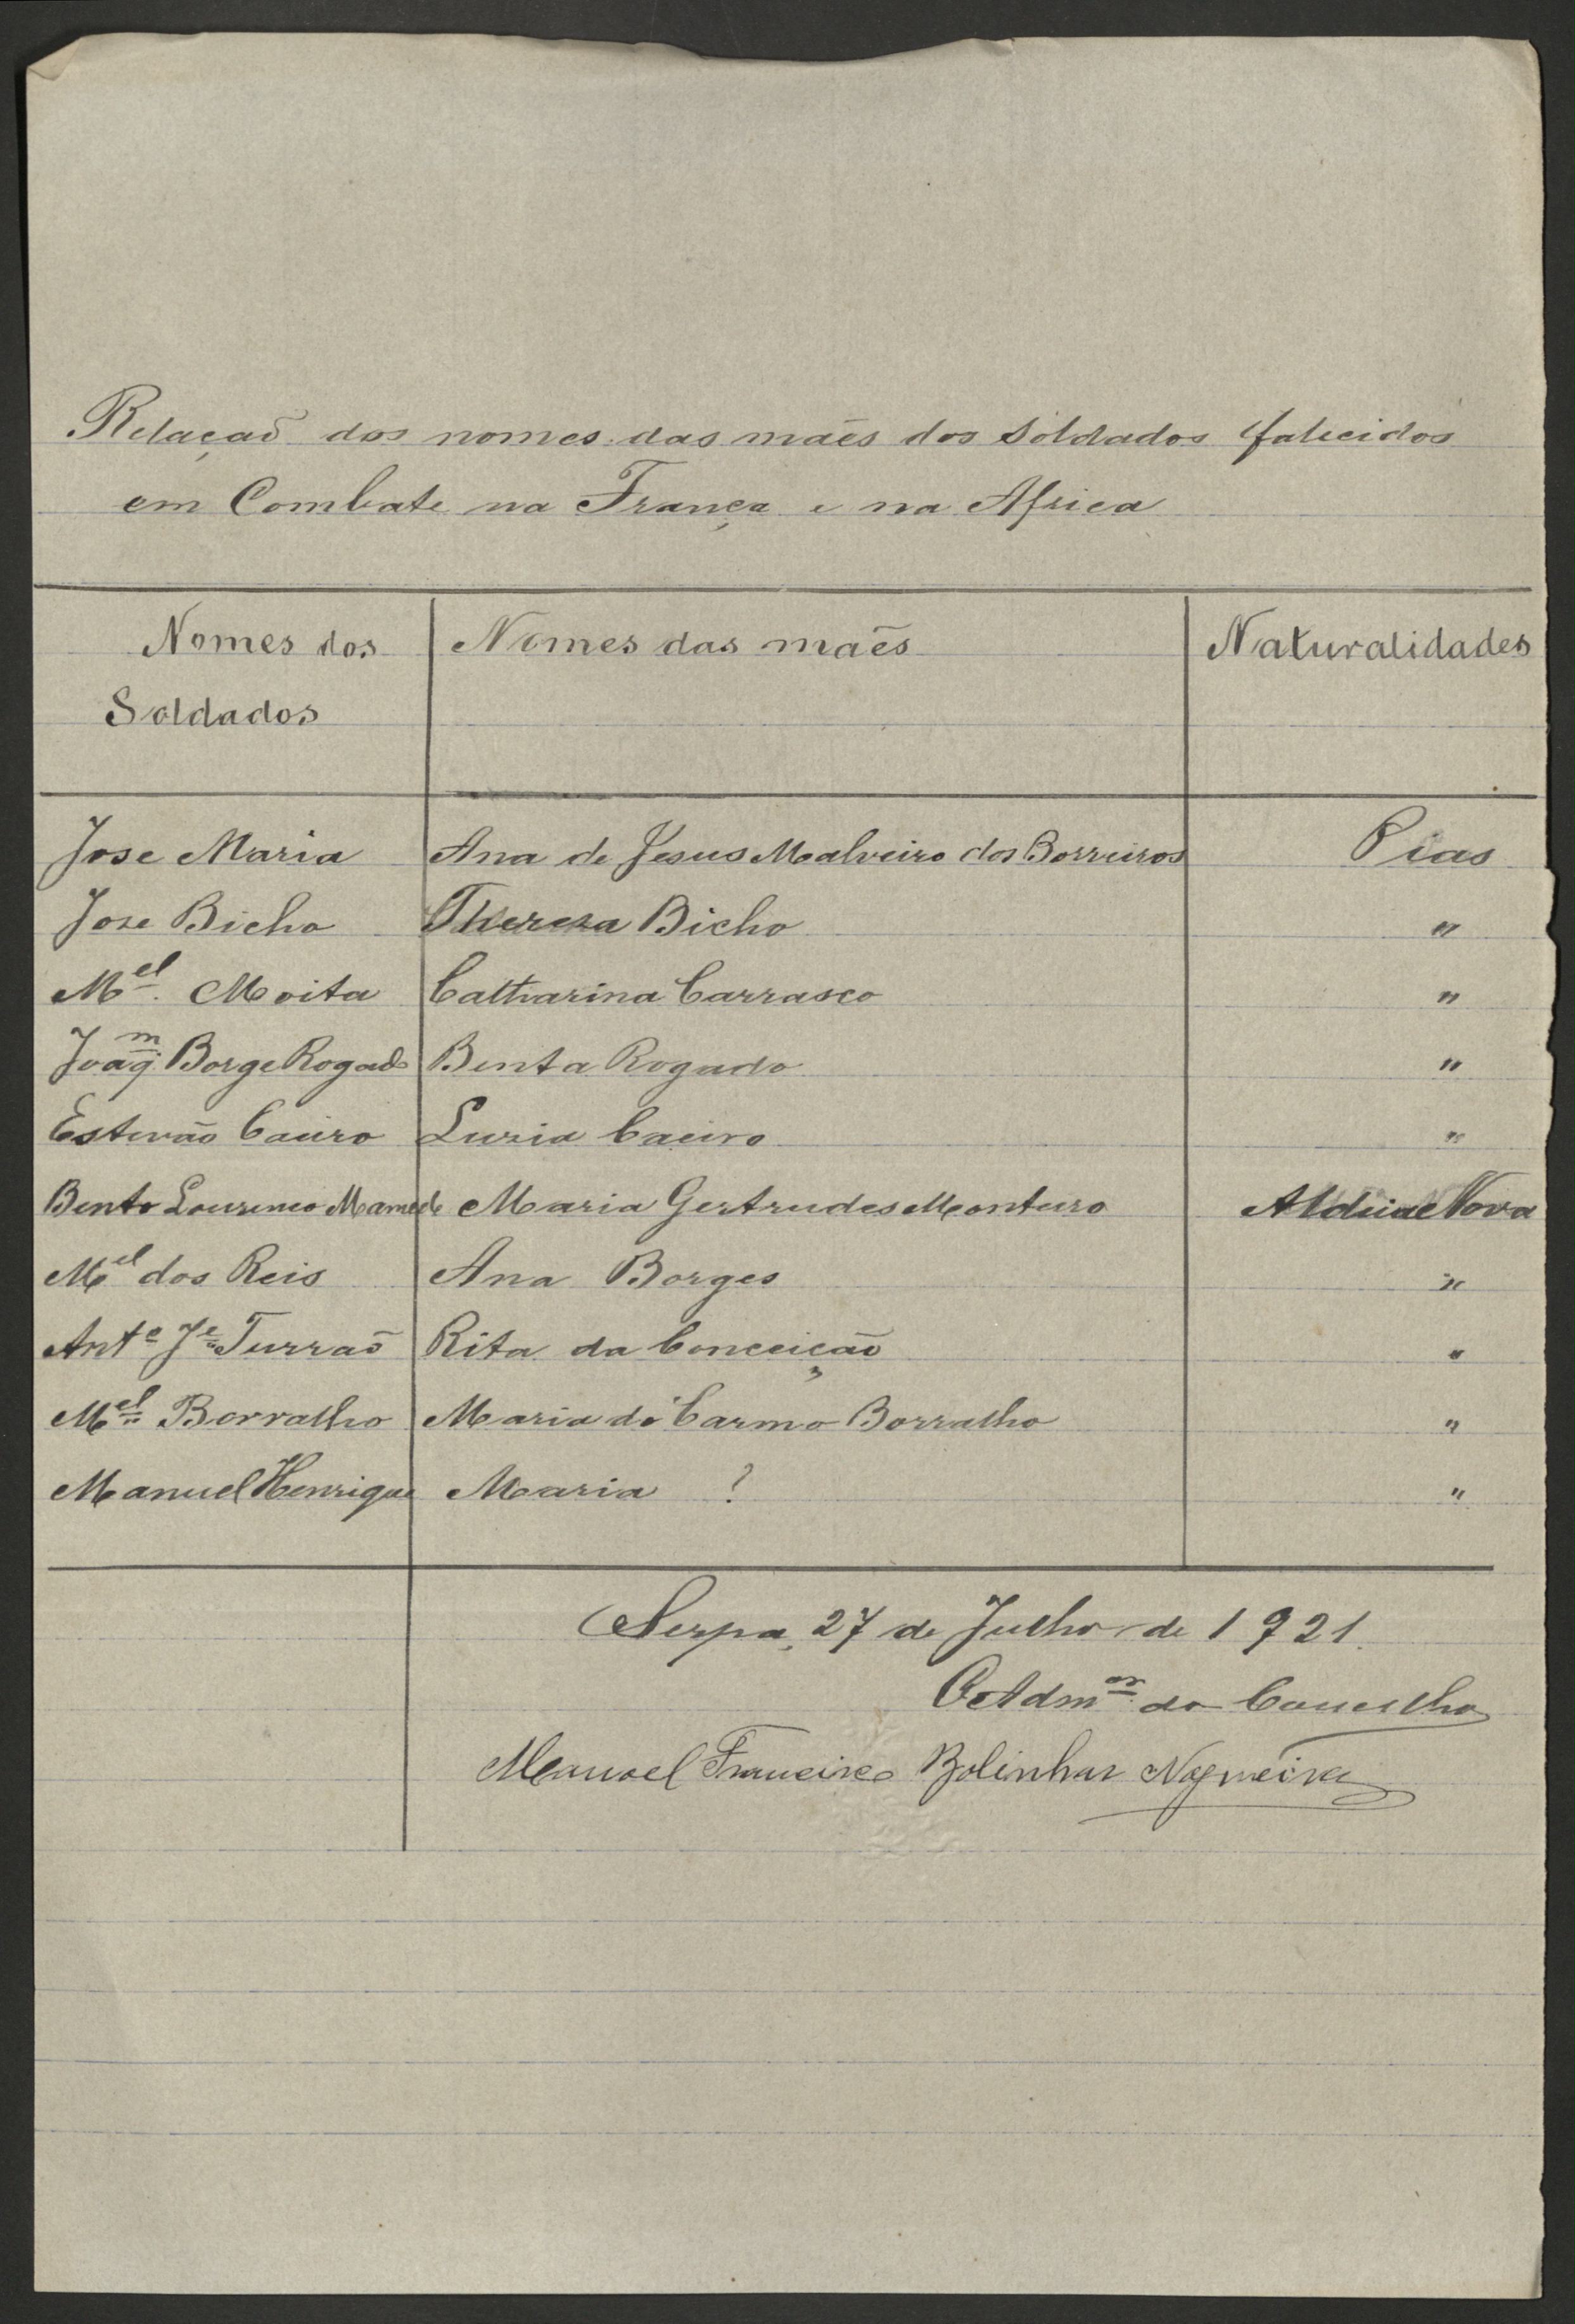 Relação dos nomes das mães dos soldados falecidos
em Combate na França e na Africa
Nomes dos Soldados | Nomes das mães | Naturalidades
Jose Maria | Ana de Jesus Malveiro dos Borreiros | Pias
Jose Bicho | Thereza Bicho | "
Mel. Moita | Catharina Carrasco | "
Joaqm Borge Rogado | Benta Rogado | "
Estevão Caeiro | Luzia Caeiro | "
Bento Lourenco Mamede | Maria Gertrudes Monturo | Aldeia Nova
Mel dos Reis | Ana Borges | "
Ante Je Turrão | Rita da Conceição | "
Mel Borralho | Maria do Carmo Borralho | "
Manuel Henrique | Maria ? | "
Serpa, 27 de Julho de 1921.
O Admor do Concelho
Manoel Francisco Bolinhas Nogueira